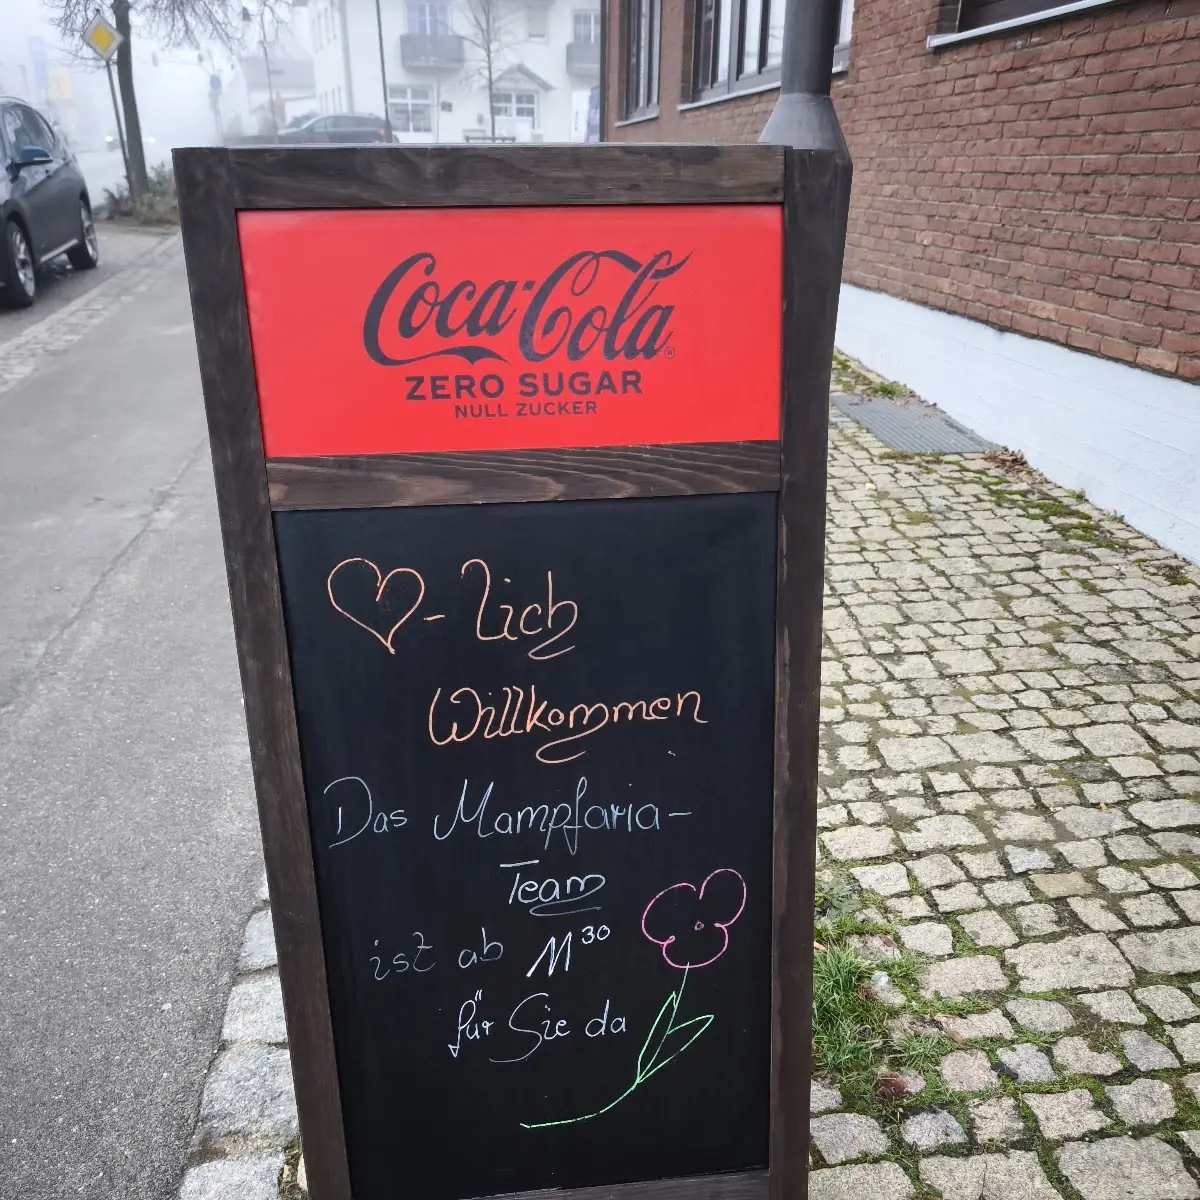 Coca-Cola®
ZERO SUGAR
NULL ZUCKER
♡-lich
Willkommen
Das Mampfaria-
Team
ist ab 11³⁰
für Sie da